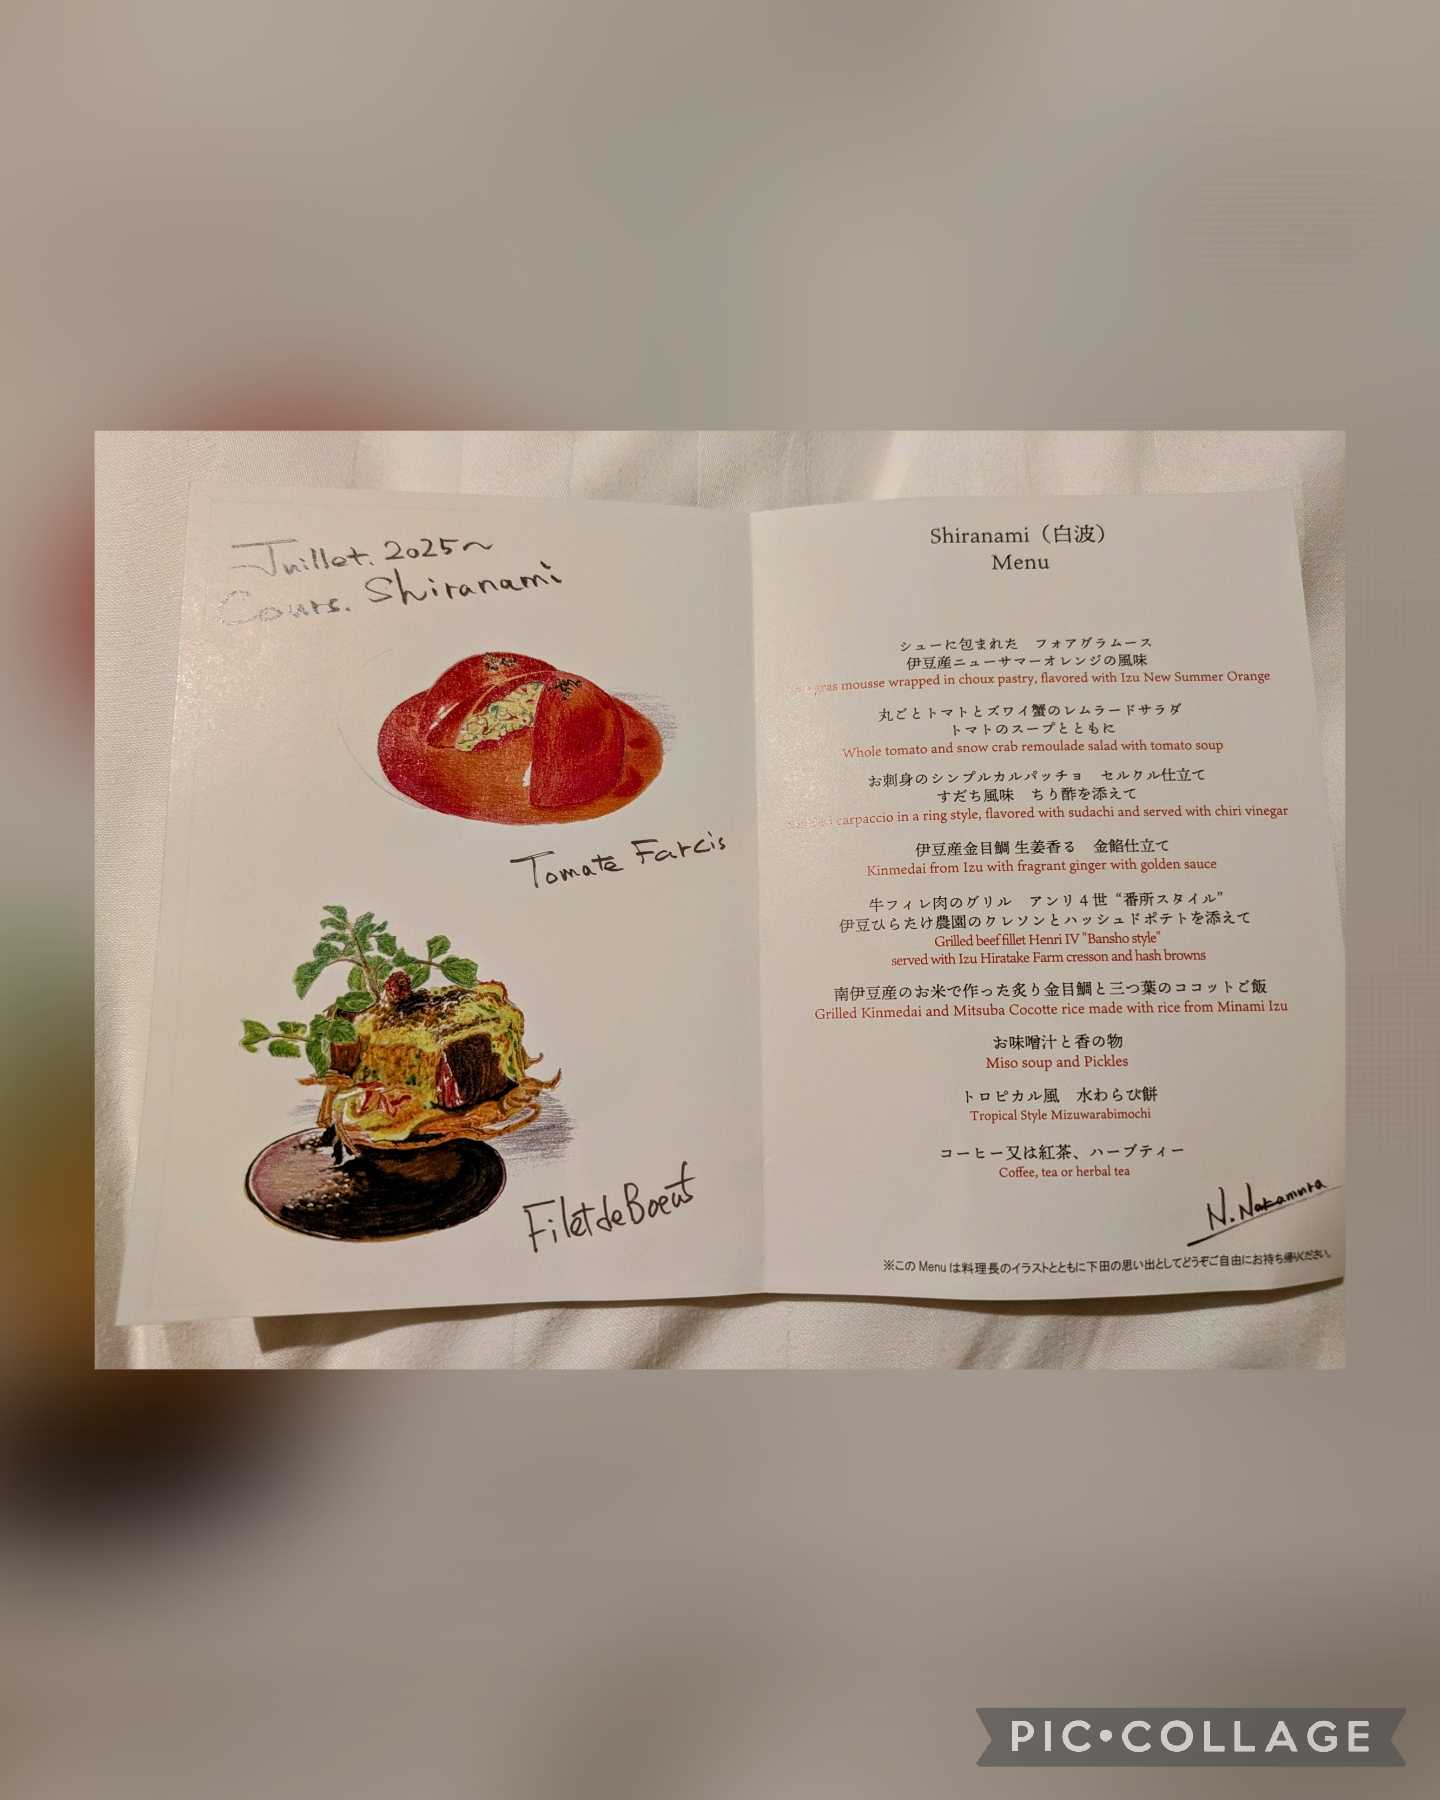 Juillet. 2025~
Cours. Shiranami
Tomate Farcis
Filet de Boeuf
Shiranami（白波）
Menu
シューに包まれた　フォアグラムース
伊豆産ニューサマーオレンジの風味
gras mousse wrapped in choux pastry, flavored with Izu New Summer Orange
丸ごとトマトとズワイ蟹のレムラードサラダ
トマトのスープとともに
Whole tomato and snow crab remoulade salad with tomato soup
お刺身のシンプルカルパッチョ　セルクル仕立て
すだち風味　ちり酢を添えて
carpaccio in a ring style, flavored with sudachi and served with chiri vinegar
伊豆産金目鯛 生姜香る　金餡仕立て
Kinmedai from Izu with fragrant ginger with golden sauce
牛フィレ肉のグリル　アンリ４世 “番所スタイル”
伊豆ひらたけ農園のクレソンとハッシュドポテトを添えて
Grilled beef fillet Henri IV "Bansho style"
served with Izu Hiratake Farm cresson and hash browns
南伊豆産のお米で作った炙り金目鯛と三つ葉のココットご飯
Grilled Kinmedai and Mitsuba Cocotte rice made with rice from Minami Izu
お味噌汁と香の物
Miso soup and Pickles
トロピカル風　水わらび餅
Tropical Style Mizuwarabimochi
コーヒー又は紅茶、ハーブティー
Coffee, tea or herbal tea
N. Nakamura
※この Menu は料理長のイラストとともに下田の思い出としてどうぞご自由にお持ち帰りください。
PIC•COLLAGE